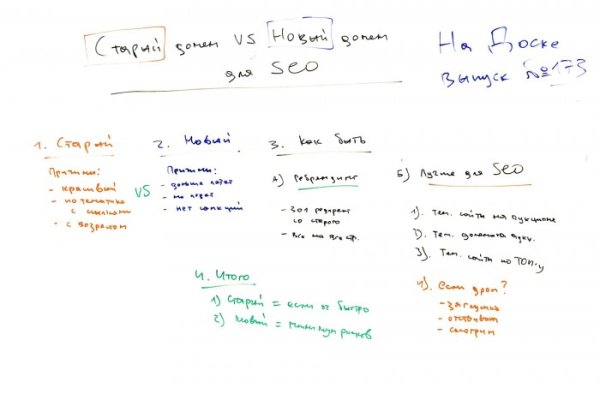 Старый домен VS Новый домен
для SEO
На Доске
выпуск №173
1. Старый
Причины:
- красивый
- по тематике
с ссылками
- с возрастом
VS
2. Новый
Причины:
- дольше
- не
- нет санкций
3. Как быть
А) Ребрендинг
- 301 редирект
со старого
- все на все стр.
Б) Лучше для SEO
1). Тем. сайты на аукционе
2). Тем. домена аукц.
3). Тем. сайты по ТОП-у
4). Если дроп?
- заглушка
- отстойник
- смотрим
4. Итого
1) Старый = если ок быстро
2) Новый = минимум рисков